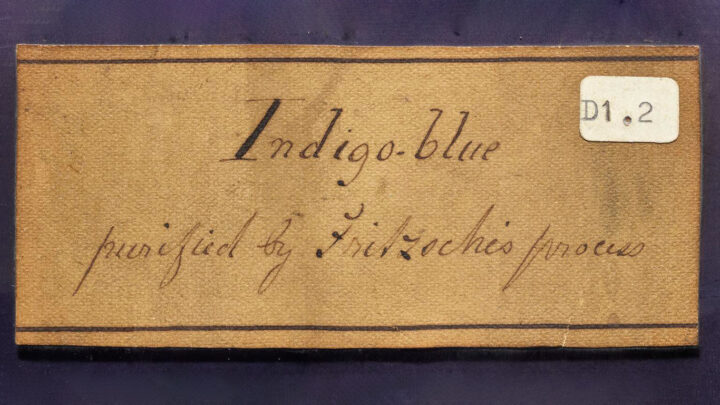 Indigo-blue
D1.2
purified by Fritzsche's process